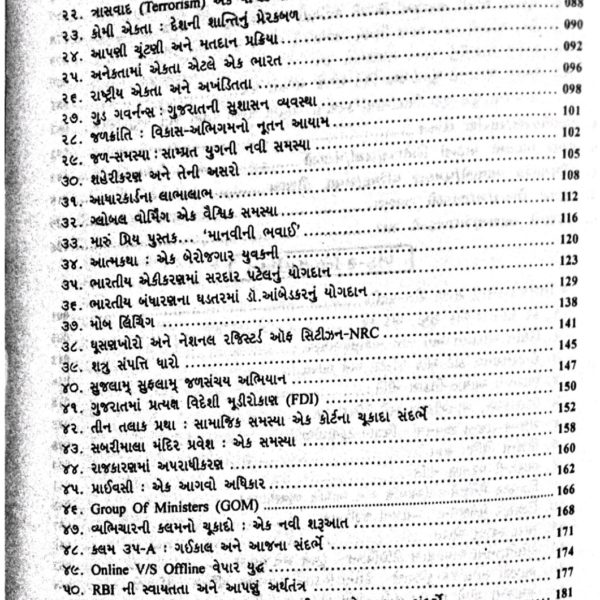 ૨૨. ત્રાસવાદ (Terrorism) એક 088
૨૩. કોમી એકતા : દેશની શાન્તિનું પ્રેરકબળ 090
૨૪. આપણી ચૂંટણી અને મતદાન પ્રક્રિયા 092
૨૫. અનેકતામાં એકતા એટલે એક ભારત 096
૨૬. રાષ્ટ્રીય એકતા અને અખંડિતતા 098
૨૭. ગુડ ગવર્નન્સ : ગુજરાતની સુશાસન વ્યવસ્થા 101
૨૮. જળક્રાંતિ : વિકાસ-અભિગમનો નૂતન આયામ 102
૨૯. જળ-સમસ્યા : સામ્પ્રત યુગની નવી સમસ્યા 105
૩૦. શહેરીકરણ અને તેની અસરો 108
૩૧. આધારકાર્ડના લાભાલાભ 112
૩૨. ગ્લોબલ વોર્મિંગ એક વૈશ્વિક સમસ્યા 116
૩૩. મારું પ્રિય પુસ્તક... 'માનવીની ભવાઈ' 120
૩૪. આત્મકથા : એક બેરોજગાર યુવકની 123
૩૫. ભારતીય એકીકરણમાં સરદાર પટેલનું યોગદાન 129
૩૬. ભારતીય બંધારણના ઘડતરમાં ડૉ.આંબેડકરનું યોગદાન 138
૩૭. મોબ લિંચિંગ 141
૩૮. ઘૂસણખોરો અને નેશનલ રજિસ્ટર્ડ ઑફ સિટીઝન-NRC 145
૩૯. શત્રુ સંપત્તિ ધારો 147
૪૦. સુજલામ્ સુફલામ્ જળસંચય અભિયાન 150
૪૧. ગુજરાતમાં પ્રત્યક્ષ વિદેશી મૂડીરોકાણ (FDI) 152
૪૨. તીન તલાક પ્રથા : સામાજિક સમસ્યા એક કોર્ટના ચૂકાદા સંદર્ભે 158
૪૩. સબરીમાલા મંદિર પ્રવેશ : એક સમસ્યા 160
૪૪. રાજકારણમાં અપરાધીકરણ 162
૪૫. પ્રાઈવસી : એક આગવો અધિકાર 166
૪૬. Group Of Ministers (GOM) 168
૪૭. વ્યભિચારની કલમનો ચૂકાદો : એક નવી શરૂઆત 171
૪૮. કલમ ૩૫-A : ગઈકાલ અને આજના સંદર્ભે 174
૪૯. Online V/S Offline વેપાર યુદ્ધ 177
૫૦. RBI ની સ્વાયતતા અને આપણું અર્થતંત્ર 181